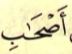 أَصْحَٰبِ